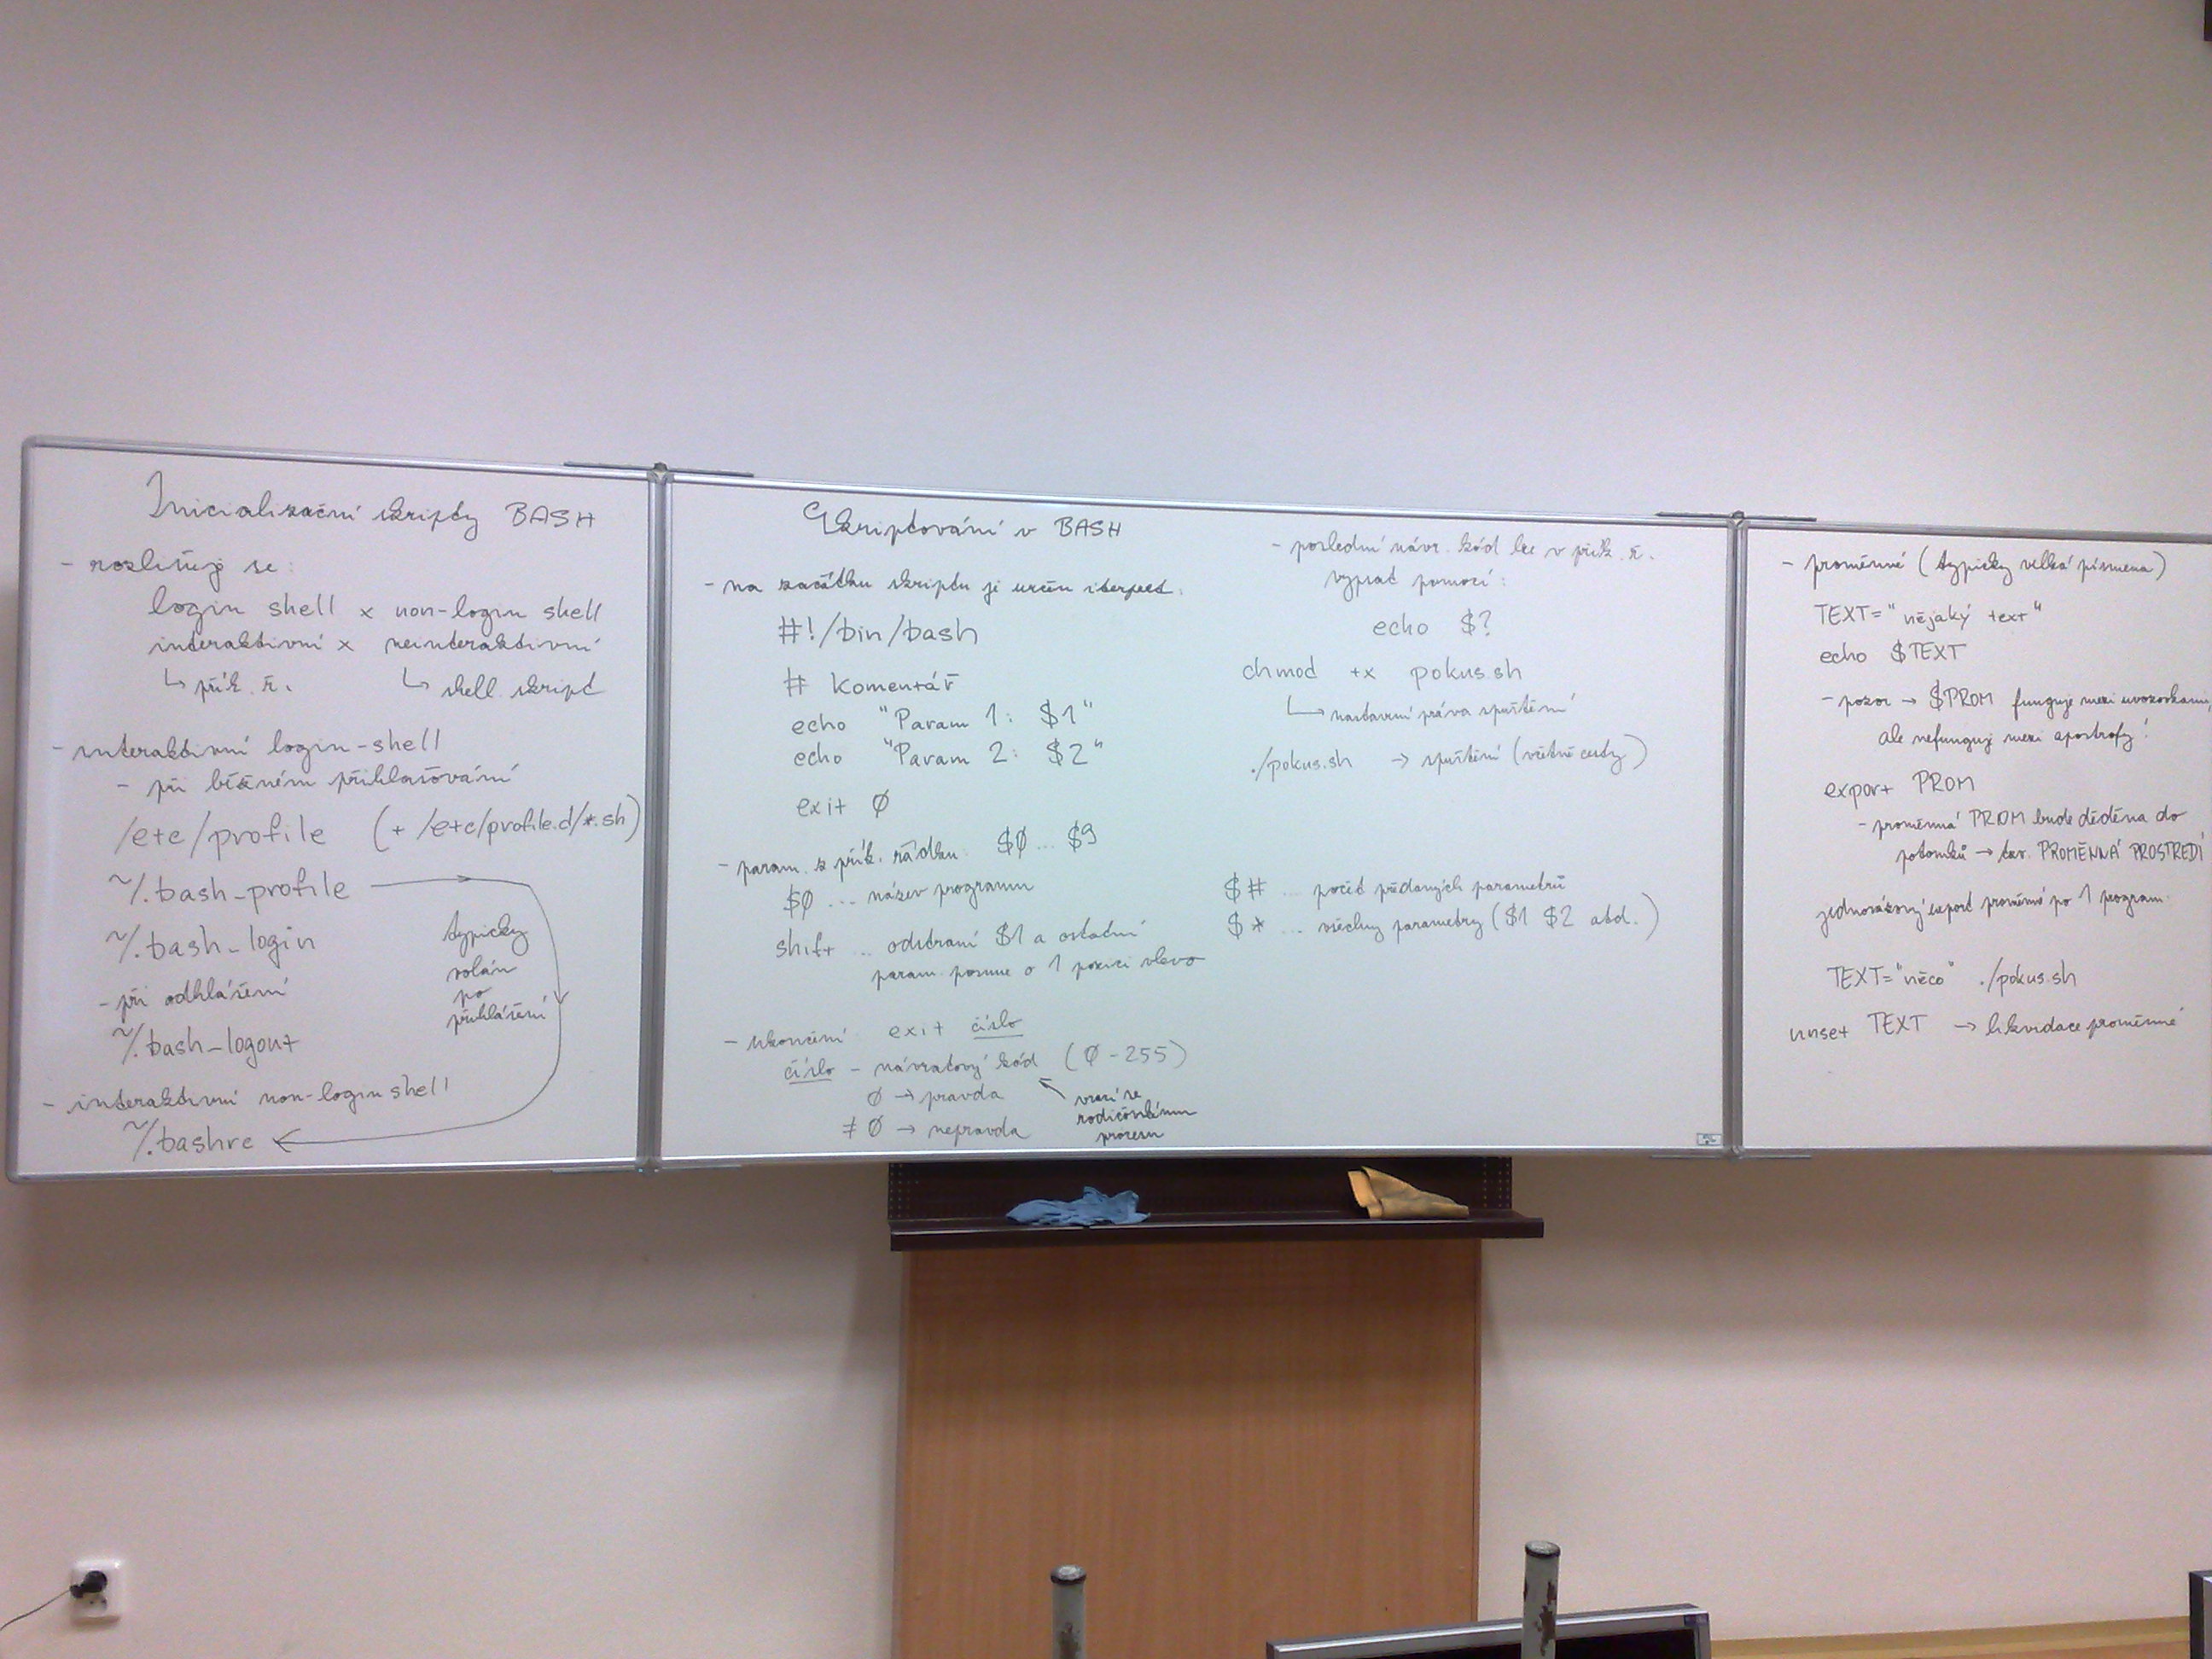 Inicializační skripty BASH
- rozlišuji se:
login shell x non-login shell
interaktivní x neinteaktivní
↳ přík. ř. ↳ shell. skript
- interaktivní login-shell
- při běžném přihlašování
/etc/profile (+ /etc/profile.d/*.sh)
~/.bash_profile →
~/.bash_login
typicky
volán
po
přihlášení
- při odhlášení
~/.bash_logout
- interaktivní non-login shell
~/.bashrc ←
Skriptování v BASH
- na začátku skriptu je určen iterpret.
#!/bin/bash
# Komentář
echo "Param 1: $1"
echo "Param 2: $2"
exit 0
- param. z přík. řádku $0 ... $9
$0 ... název programu
shift ... odstraní $1 a ostatní
param. posune o 1 pozici vlevo
- ukončení exit číslo
číslo - návratový kód (0-255)
0 → pravda
≠ 0 → nepravda
vrací se
rodičovskému
procesu
- poslední návr. kód lze v přík. ř.
vypsat pomocí:
echo $?
chmod +x pokus.sh
↳ nastavení práva spuštění
./pokus.sh → spuštění (včetně cesty)
$# ... počet předaných parametrů
$* ... všechny parametry ($1 $2 atd.)
- proměnné (typicky velká písmena)
TEXT="nějaký text"
echo $TEXT
- pozor → $PROM funguje mezi uvozovkami,
ale nefunguje mezi apostrofy!
export PROM
- proměnná PROM bude děděna do
potomků → tzv. PROMĚNNÁ PROSTŘEDÍ
jednorázový export proměnné po 1 program.
TEXT="něco" ./pokus.sh
unset TEXT → likvidace proměnné